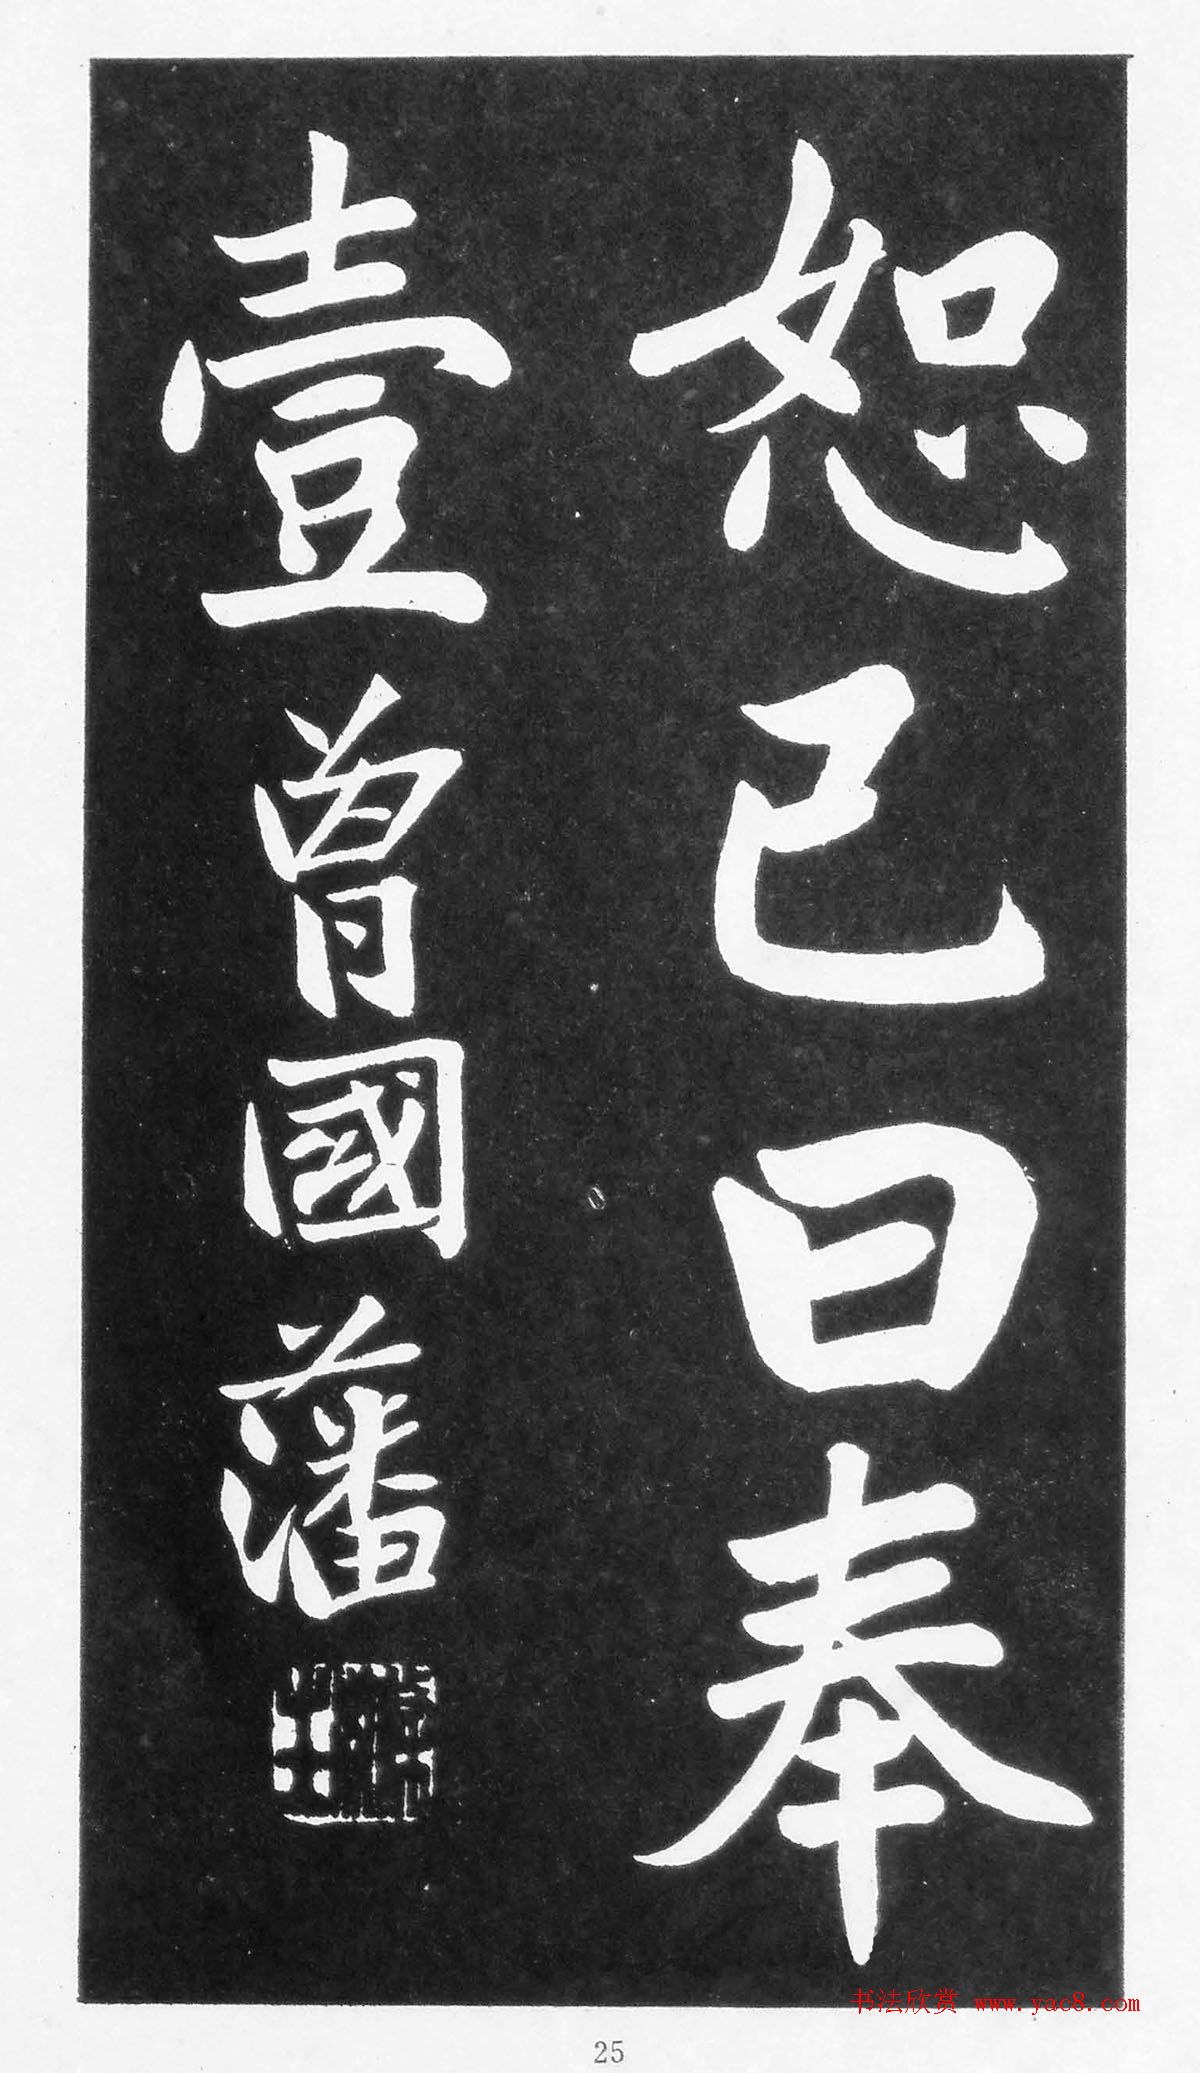 恕已曰奉
壹曾國藩
书法欣赏 www.yac8.com
25